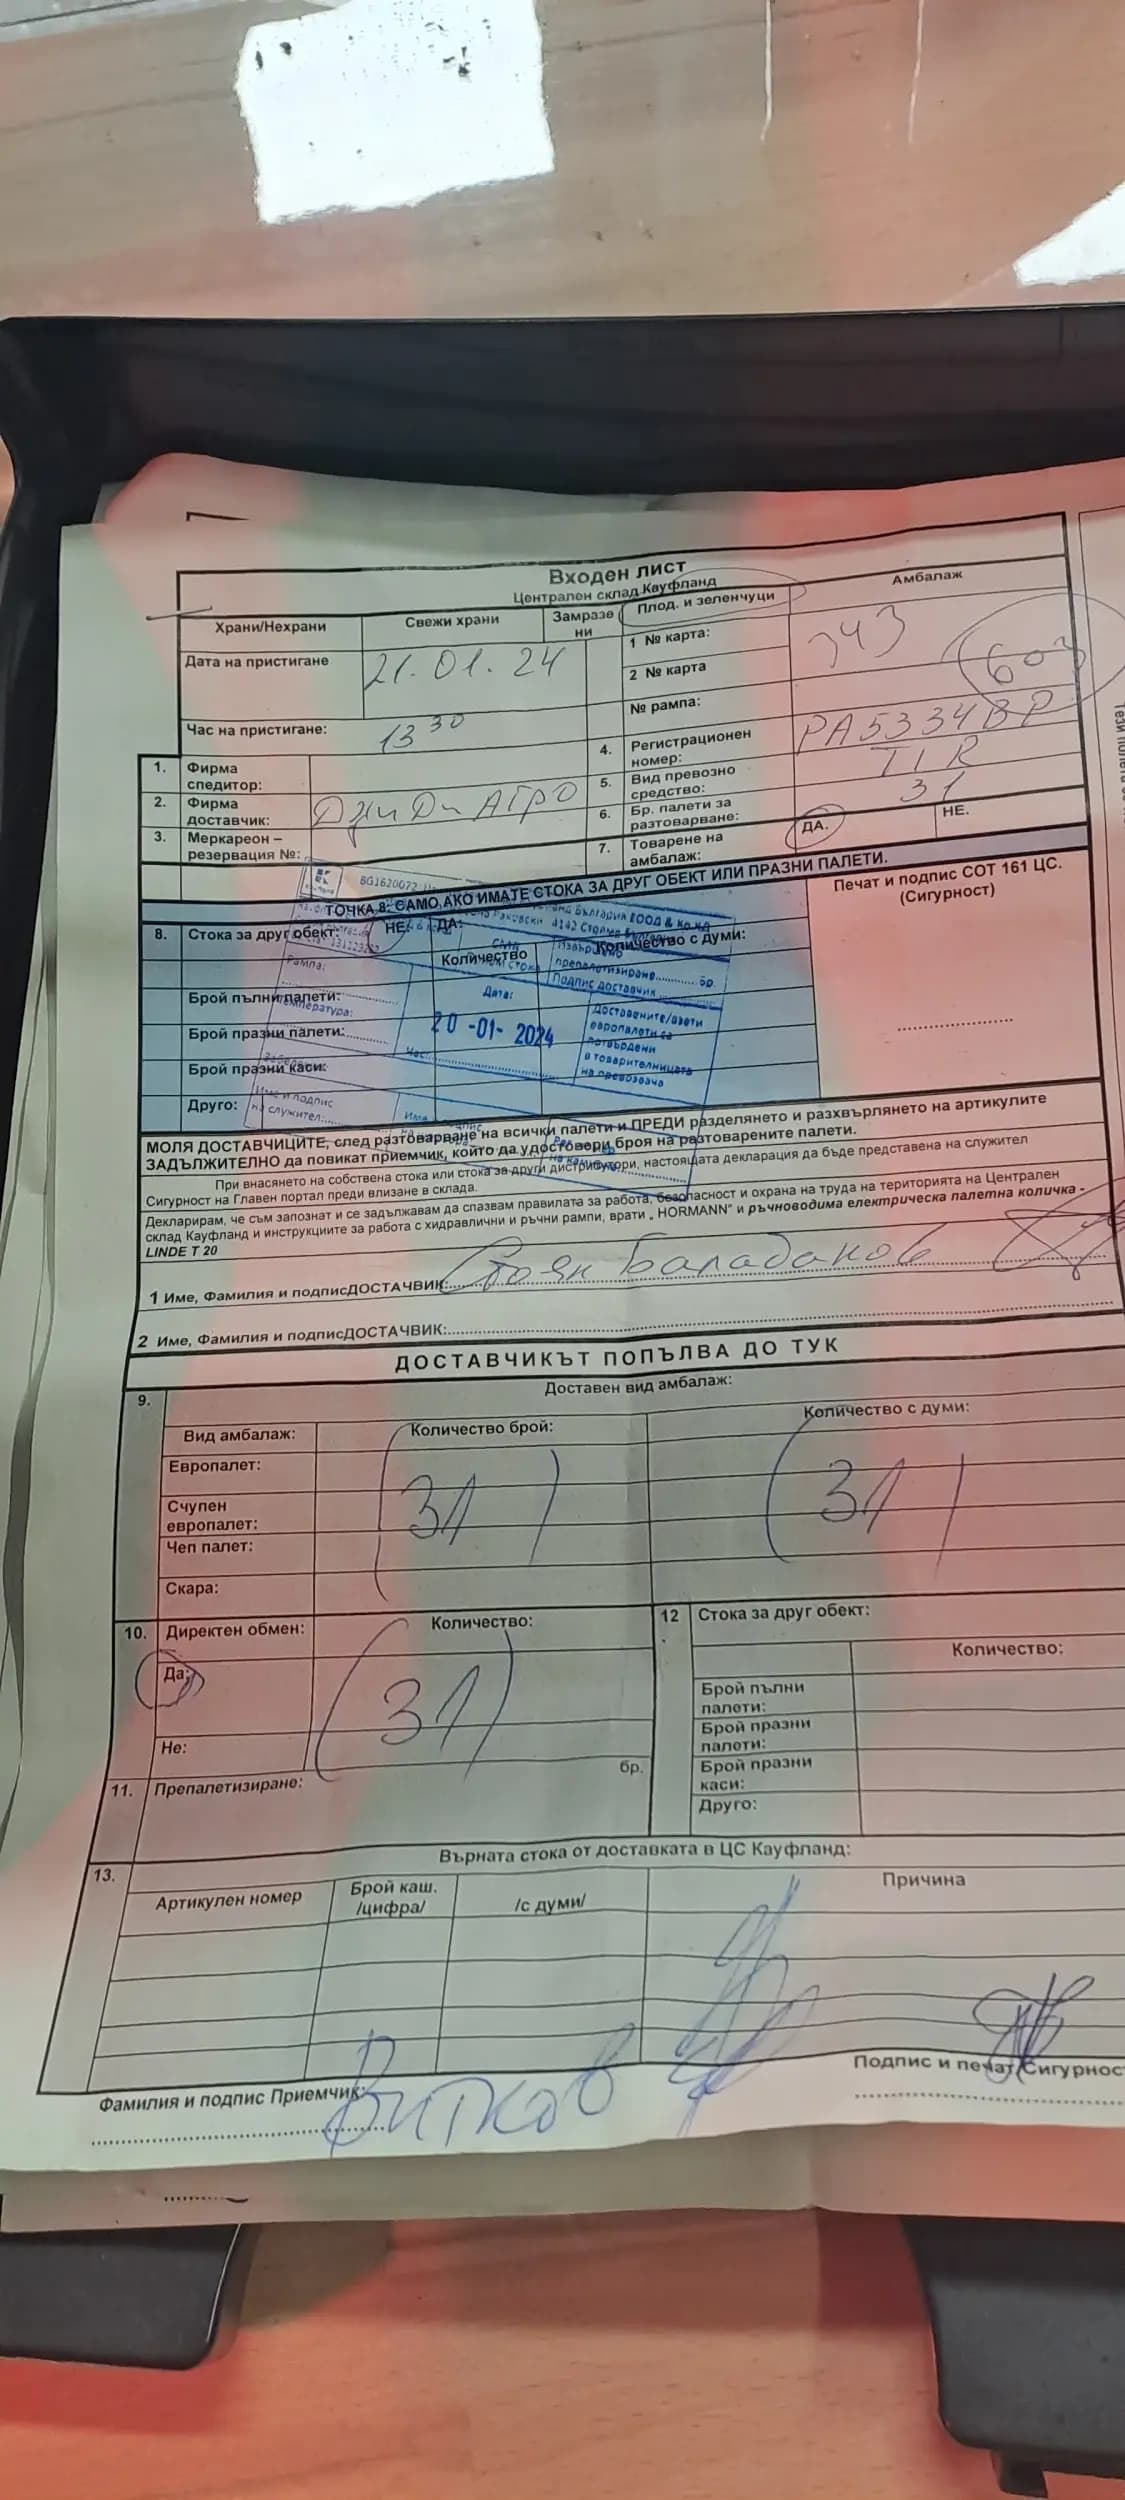 Входен лист
Централен склад Кауфланд
Храни/Нехрани
Свежи храни
Замразе
ни
Плод. и зеленчуци
Амбалаж
Дата на пристигане
21.01.24
1 № карта:
343
2 № карта
603
№ рампа:
Час на пристигане:
13 30
4. Регистрационен
номер:
PA5334BP
1. Фирма
спедитор:
5. Вид превозно
средство:
TIR
2. Фирма
доставчик:
Джи Ди АГРО
6. Бр. палети за
разтоварване:
31
3. Меркареон –
резервация №:
7. Товарене на
амбалаж:
ДА.
НЕ.
BG1620072
ТОЧКА 8: САМО АКО ИМАТЕ СТОКА ЗА ДРУГ ОБЕКТ ИЛИ ПРАЗНИ ПАЛЕТИ.
Печат и подпис СОТ 161 ЦС.
(Сигурност)
8. Стока за друг обект:
НЕ:
ДА:
Количество
Количество с думи:
България ЕООД & Ко КД
Раковски 4142
Рампа:
препалетизиране.......... бр.
Подпис доставчик
Брой пълни палети:
Температура:
Дата:
20 -01- 2024
Доставените/взети
европалети са
потвърдени
в товарителницата
на превозвача
Брой празни палети:
Час:
Брой празни каси:
Име и подпис
на служител:
Друго:
МОЛЯ ДОСТАВЧИЦИТЕ, след разтоварване на всички палети и ПРЕДИ разделянето и разхвърлянето на артикулите
ЗАДЪЛЖИТЕЛНО да повикат приемчик, който да удостовери броя на разтоварените палети.
При внасянето на собствена стока или стока за други дистрибутори, настоящата декларация да бъде представена на служител
Сигурност на Главен портал преди влизане в склада.
Декларирам, че съм запознат и се задължавам да спазвам правилата за работа, безопасност и охрана на труда на територията на Централен
склад Кауфланд и инструкциите за работа с хидравлични и ръчни рампи, врати „ HORMANN" и ръчноводима електрическа палетна количка -
LINDE T 20
1 Име, Фамилия и подписДОСТАЧВИК: Стоян Баладанов
2 Име, Фамилия и подписДОСТАЧВИК:
ДОСТАВЧИКЪТ ПОПЪЛВА ДО ТУК
9. Доставен вид амбалаж:
Вид амбалаж:
Количество брой:
Количество с думи:
Европалет:
Счупен
европалет:
31
31
Чеп палет:
Скара:
10. Директен обмен:
Количество:
12 Стока за друг обект:
Количество:
Да:
31
Брой пълни
палети:
Брой празни
палети:
Не:
бр.
Брой празни
каси:
11. Препалетизиране:
Друго:
13. Върната стока от доставката в ЦС Кауфланд:
Артикулен номер
Брой каш.
/цифра/
/с думи/
Причина
Фамилия и подпис Приемчик:
Витков
Подпис и печат Сигурнос